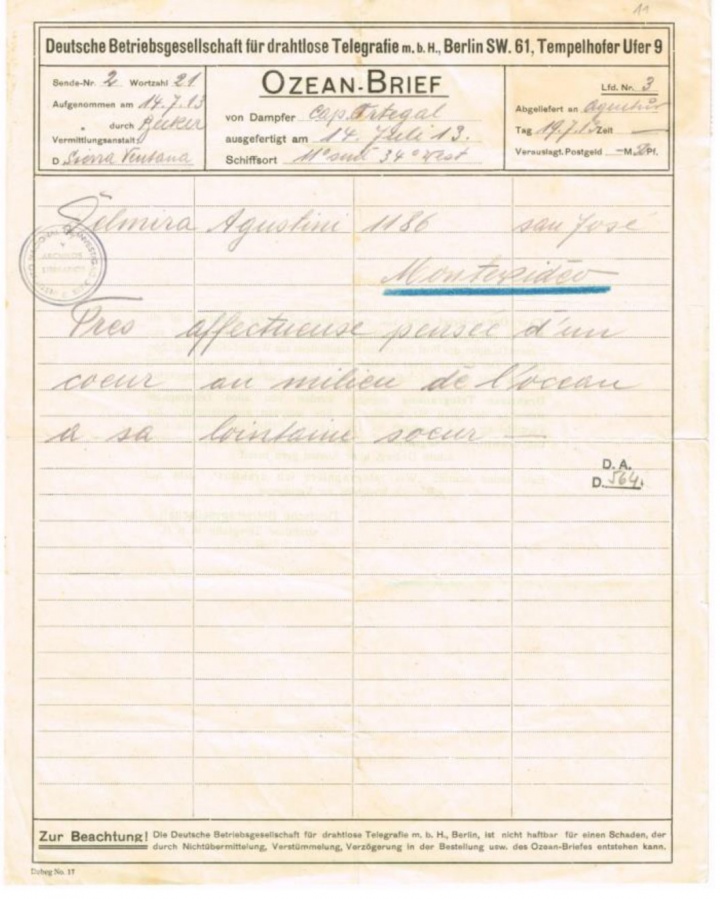 11
Deutsche Betriebsgesellschaft für drahtlose Telegrafie m. b. H., Berlin SW. 61, Tempelhofer Ufer 9
Sende-Nr. 2 Wortzahl 21
Aufgenommen am 14.7.13
durch
Vermittlungsanstalt:
D. Sierra Ventana
OZEAN-BRIEF
von Dampfer Cap Ortegal
ausgefertigt am 14. Juli 13.
Schiffsort 11° sud 34° West
Lfd. Nr. 3
Abgeliefert an
Tag 19.7. Zeit —
Verauslagt. Postgeld — M. Pf.
Delmira Agustini 1186 san José
Montevideo
Tres affectueuse pensée d'un
coeur au milieu de l'ocean
a sa lointaine soeur —
D. A.
D. 564.
Zur Beachtung! Die Deutsche Betriebsgesellschaft für drahtlose Telegrafie m. b. H., Berlin, ist nicht haftbar für einen Schaden, der
durch Nichtübermittelung, Verstümmelung, Verzögerung in der Bestellung usw. des Ozean-Briefes entstehen kann.
Debeg No. 17